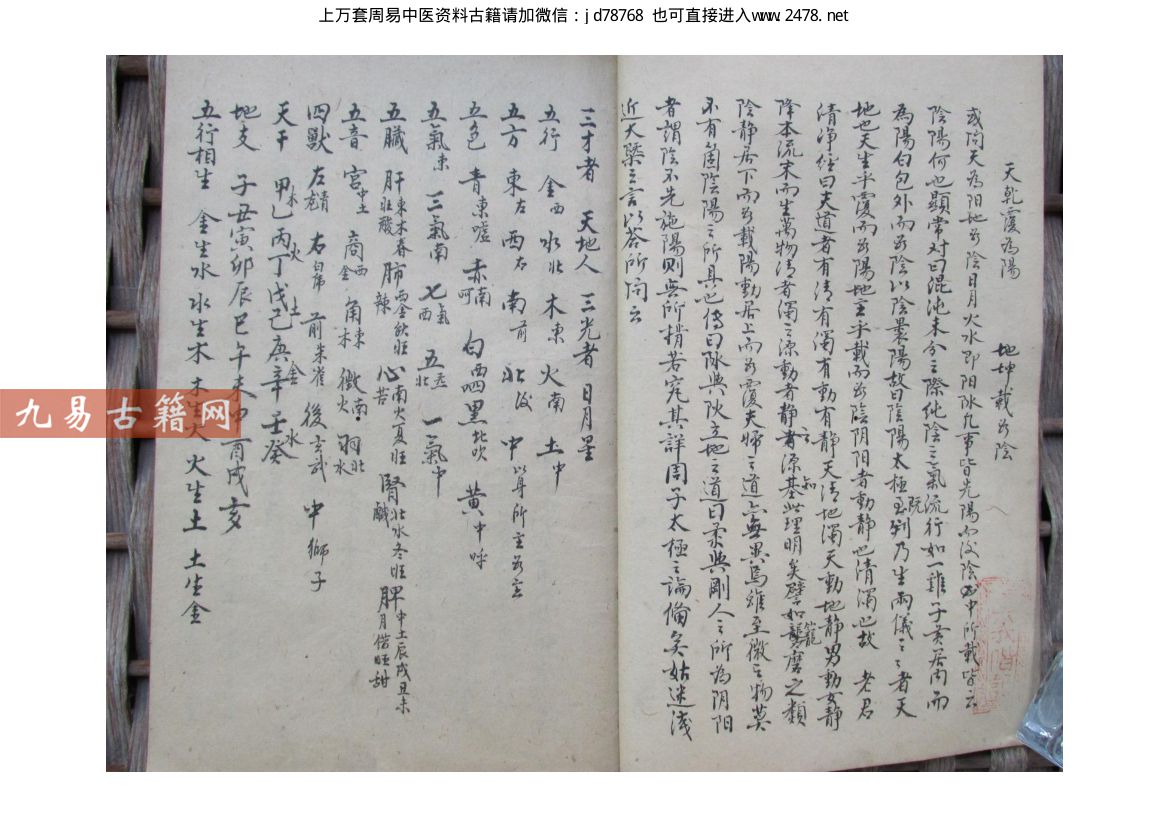 上万套周易中医资料古籍请加微信：jd78768 也可直接进入www.2478.net
天乾覆為陽 地坤載為陰
或問天為阳地為陰日月火水即阳陰九事皆先陽而後陰 中所載皆云
陰陽何也顯常对曰混沌未分之際純陰之氣流行如一雞子黃居內而
為陽白包外而為陰以陰曩陽故曰陰陽太極既判乃生兩儀之者天
地也天生乎覆而為陽地主乎載而為陰阴阳者動靜也清濁也故 老君
清净經曰夫道者有清有濁有動有静天清地濁天動地静男動女静
降本流末而生萬物清者濁之源動者靜之基此理明矣譬如礱磨之類
陰静居下而為載陽動居上而為覆夫婦之道亦無異焉雖至微之物莫
不有箇陰陽之所具也傳曰 與 立地之道曰柔與剛人之所為阴阳
者謂陰不先施陽則無所 若究其詳周子太極之論俻矣姑述淺
近大槩之言以答所问云
三才者 天地人 三光者 日月星
五行 金西 水北 木東 火南 土中
五方 東左 西右 南前 北後 中以身所主為言
五色 青東嘘 赤南呵 白西呬 黑北吹 黃中呼
五氣東 三氣南 七氣西 五炁北 一氣中
五臟 肝東木春旺酸 肺西金秋旺辣 心南火夏旺苦 腎北水冬旺鹹 脾中土辰戌丑未月偕旺甜
五音 宮中土 商西金 角東木 徵南火 羽北水
四獸 左青龍 右白帝 前朱雀 後玄武 中獅子
天干 甲乙木 丙丁火 戊己土 庚辛金 壬癸水
地支 子丑寅卯辰巳午未申酉戌亥
五行相生 金生水 水生木 木生火 火生土 土生金
九易古籍网